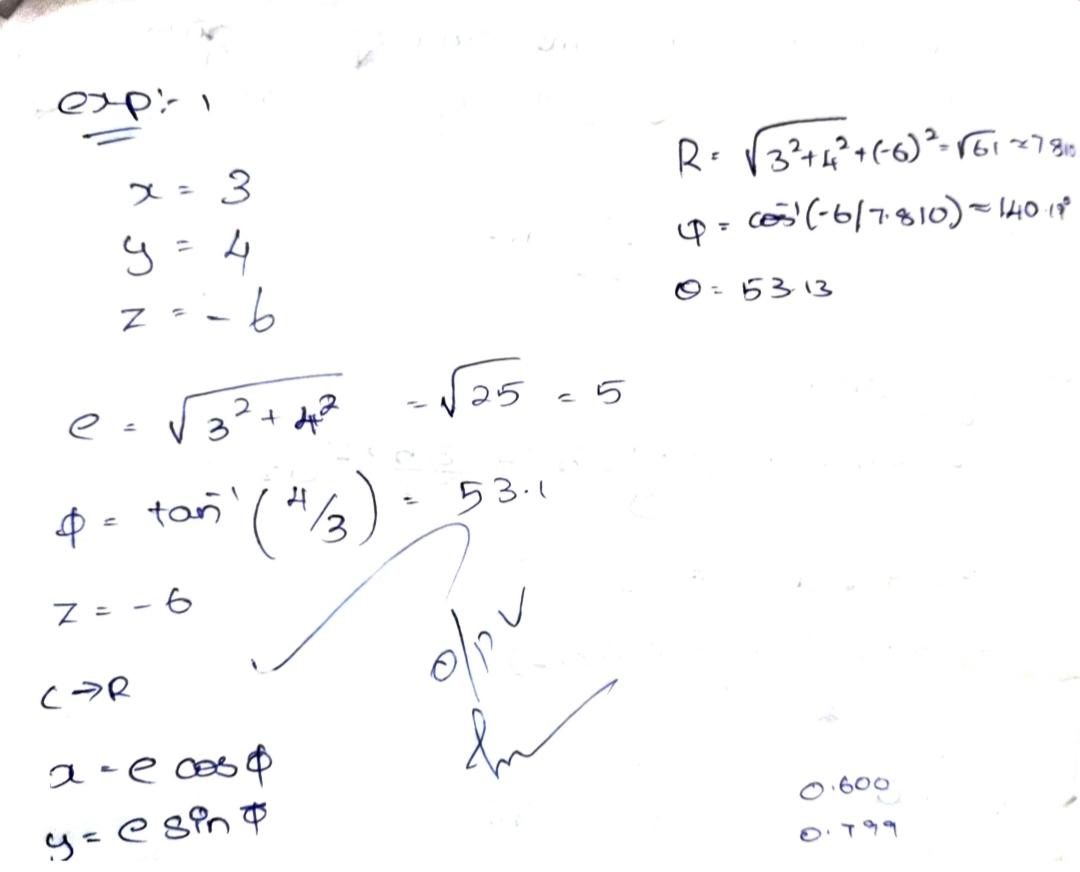 exp:- 1
x = 3
y = 4
z = -6
e = √3²+4² = √25 = 5
ϕ = tan⁻¹(4/3) = 53.1
z = -6
C ⇒ R
x = e cos ϕ
y = e sin ϕ
R = √3²+4²+(-6)² = √61 ≈ 7.810
φ = cos⁻¹(-6/7.810) ≈ 140.19°
θ = 53.13
o/p ✓
0.600
0.799